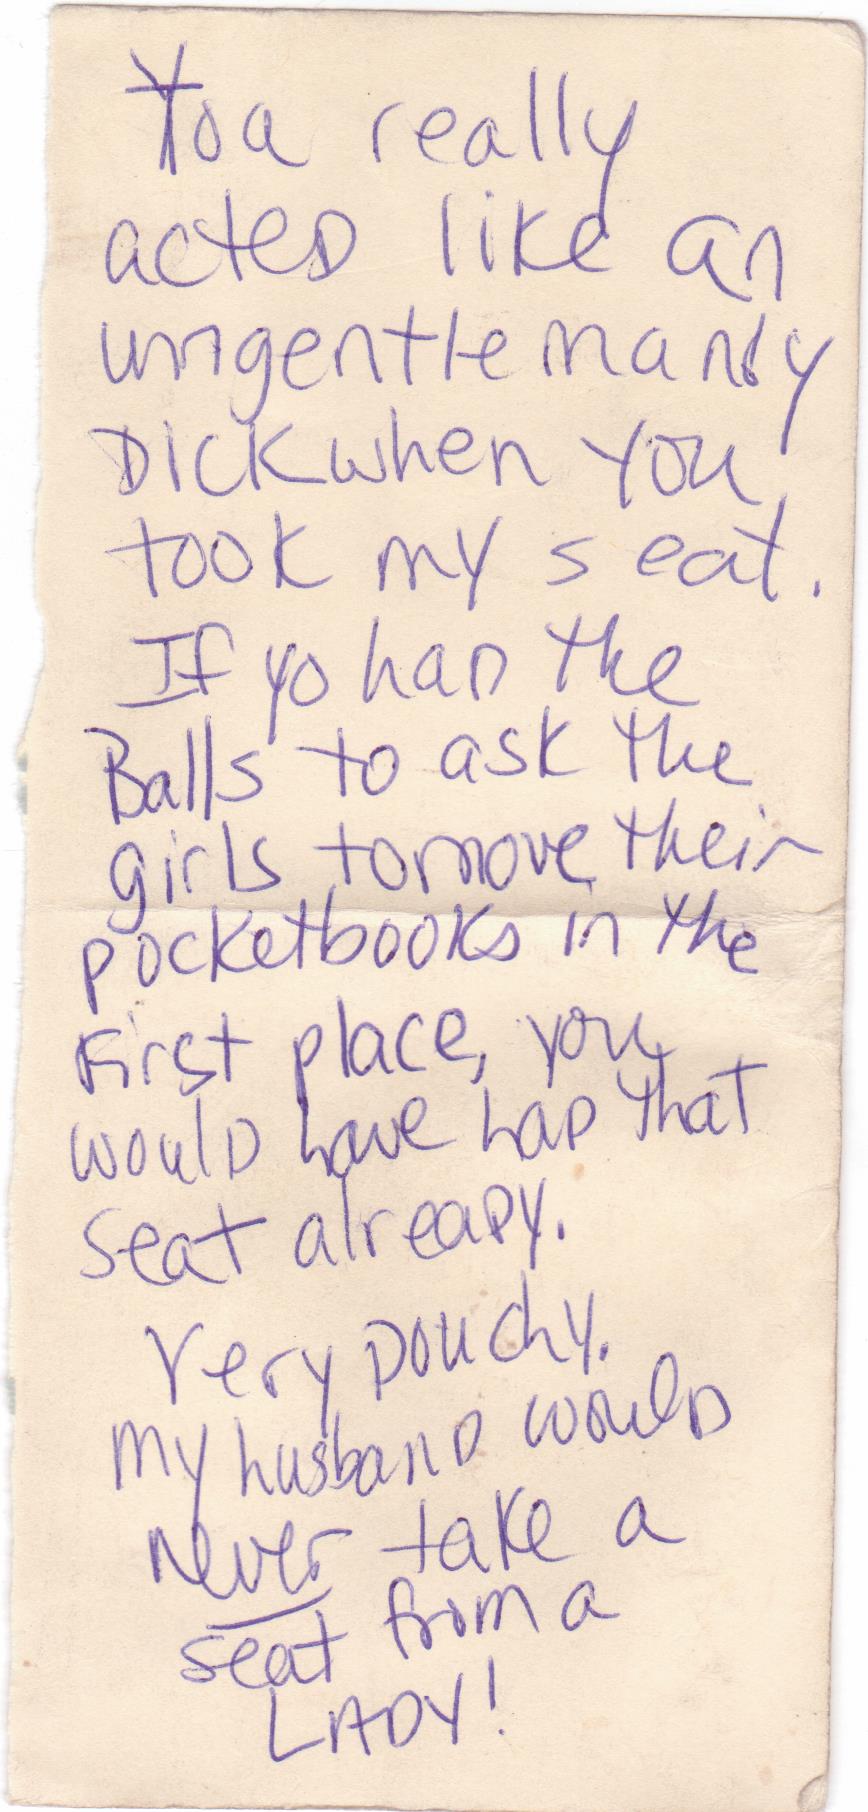 You really
acted like an
ungentlemanly
Dick when you
took my seat.
If yo had the
Balls to ask the
girls to move their
pocketbooks in the
First place, you
would have had that
seat already.
Very Douchy.
My husband would
never take a
seat from a
LADY!